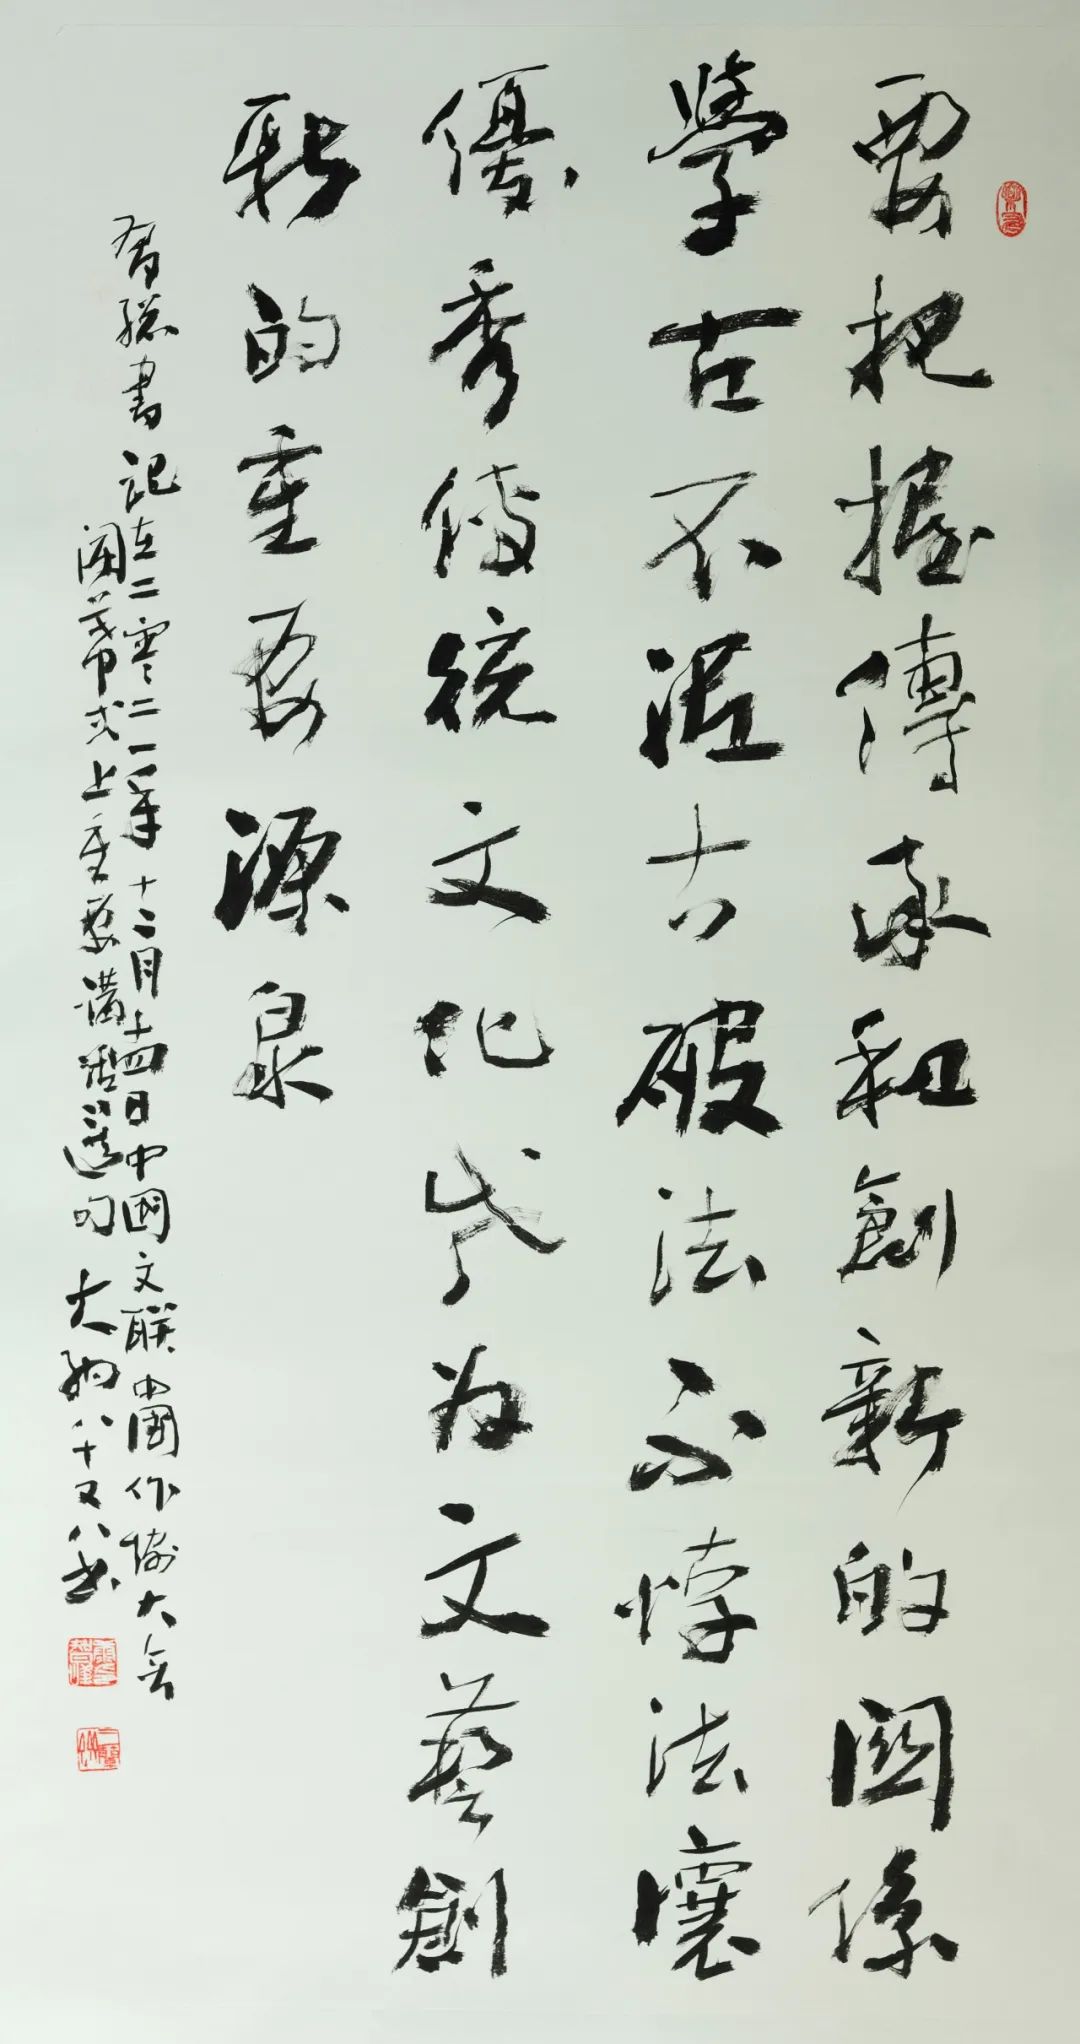 要把握傳承和創新的關係
學古不泥古破法不悖法讓
優秀傳統文化成為文藝創
新的重要源泉
習總書記在二零二一年十二月十四日中國文聯中國作協大會
開幕式上重要講話選句 大 八十又八書